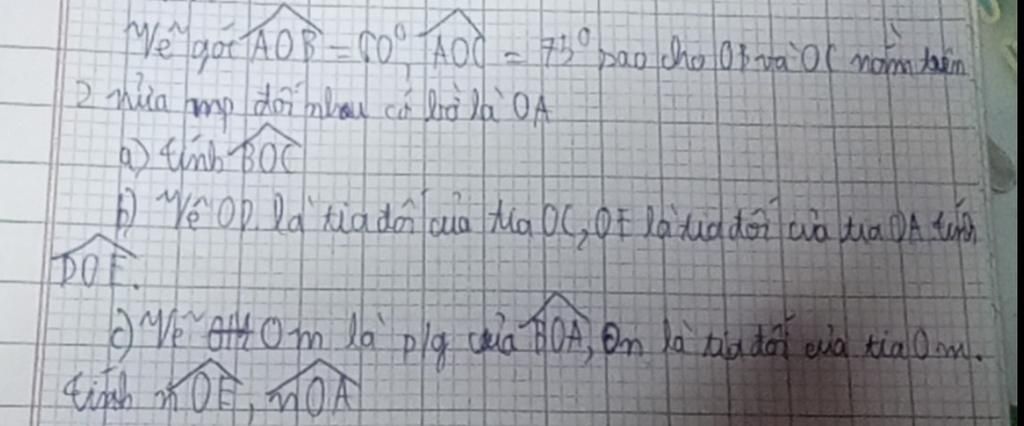 Vẽ góc AOB = 60°, AOC = 75° sao cho OB và OC nằm trên
2 nửa mp đối nhau có bờ là OA
a) tính BOC
b) Vẽ OD là tia đối của tia OC, OE là tia đối của tia OA tính
DOE.
c) Vẽ Om là p/g của BOA, On là tia đối của tia Om.
tính nOE, nOA